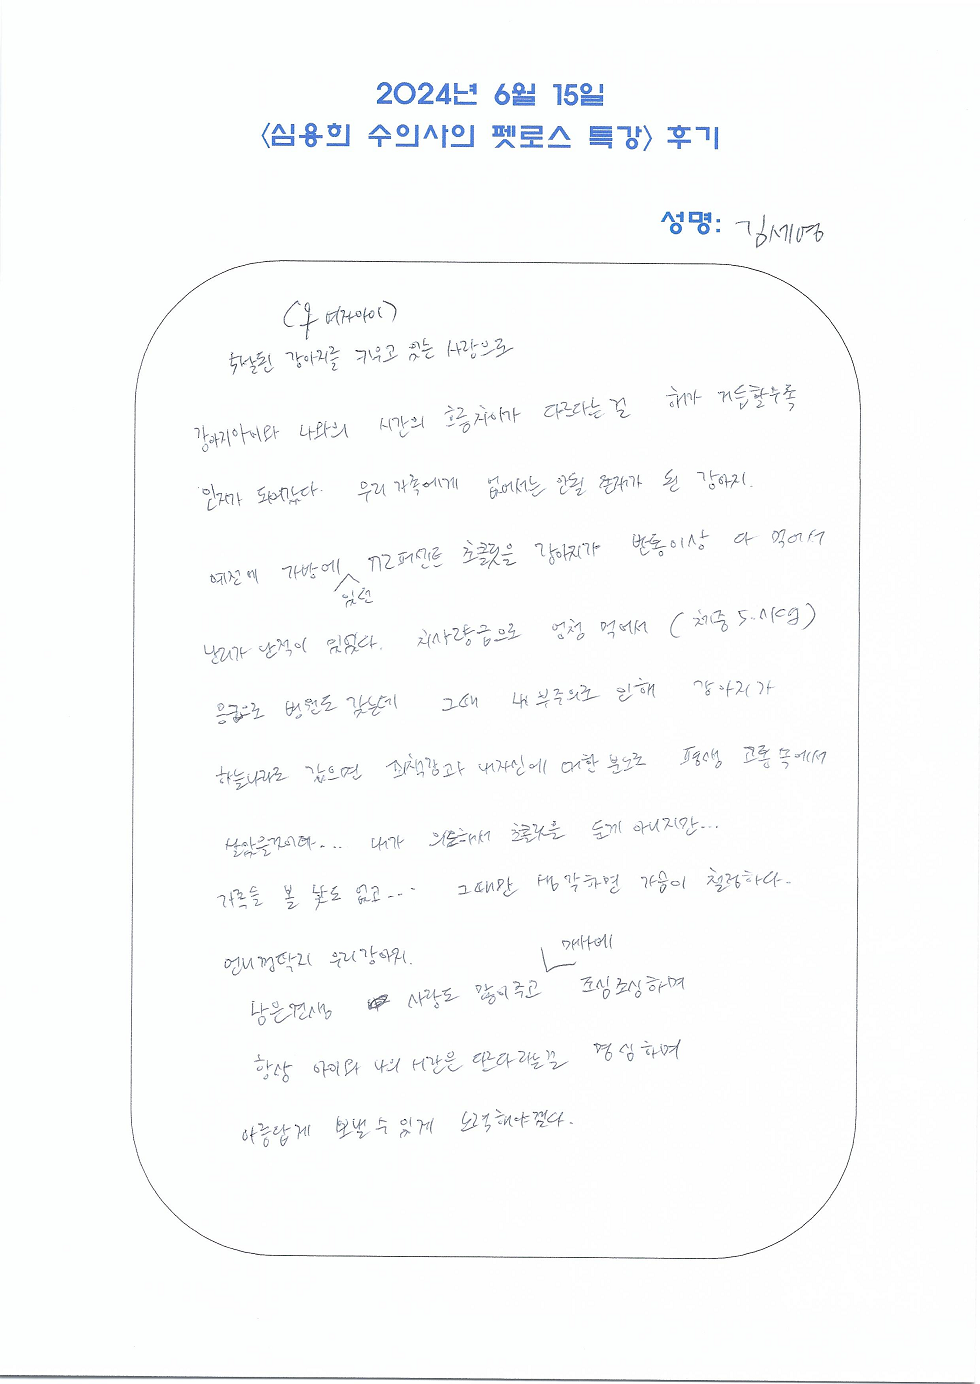 2024년 6월 15일
<심용희 수의사의 펫로스 특강> 후기
성명: 김세영
(우 여자아이)
강아지를 키우고 있는 사람으로
강아지아이와 나와의 시간의 흐름차이가 다르다는걸 해가 거듭할수록
인지가 되어갔다. 우리가족에게 없어서는 안될 존재가 된 강아지.
예전에 가방에 있던 72퍼센트 초콜릿을 강아지가 반통이상 다 먹어서
난리가 난적이 있었다. 치사량급으로 엄청 먹어서 (체중 5.1kg)
응급으로 병원도 갔는데 그때 내 부주의로 인해 강아지가
하늘나라로 갔으면 죄책감과 내자신에 대한 분노로 평생 고통속에서
살았을것이다... 내가 의도해서 초콜릿을 둔게 아니지만...
가족들 볼 낯도 없고.... 그때만 생각하면 가슴이 철렁하다..
언니껌딱지 우리강아지.
남은견생 사랑도 많이주고 매사에 조심조심하며
항상 아이와 나의 시간은 다르다라는걸 명심하며
아름답게 보낼 수 있게 노력해야겠다.